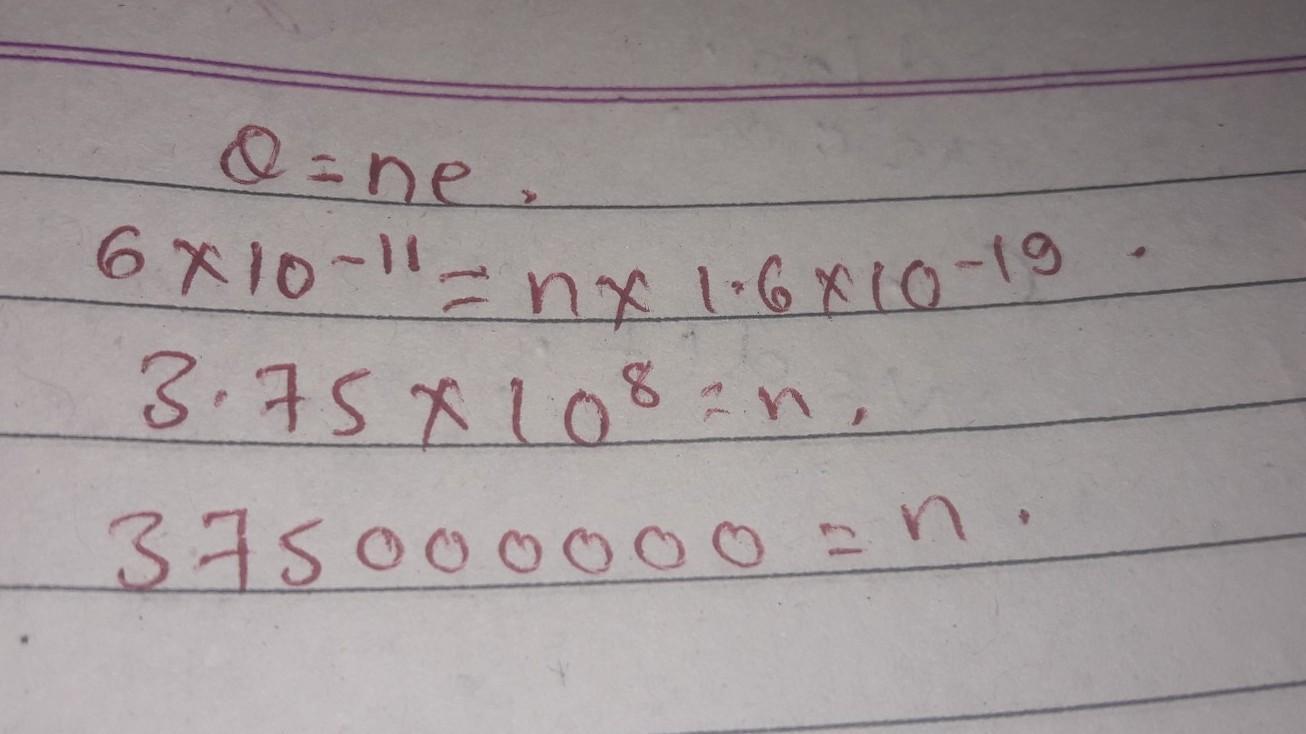 Q = ne,
6 × 10⁻¹¹ = n × 1.6 × 10⁻¹⁹ .
3.75 × 10⁸ = n,
375000000 = n .